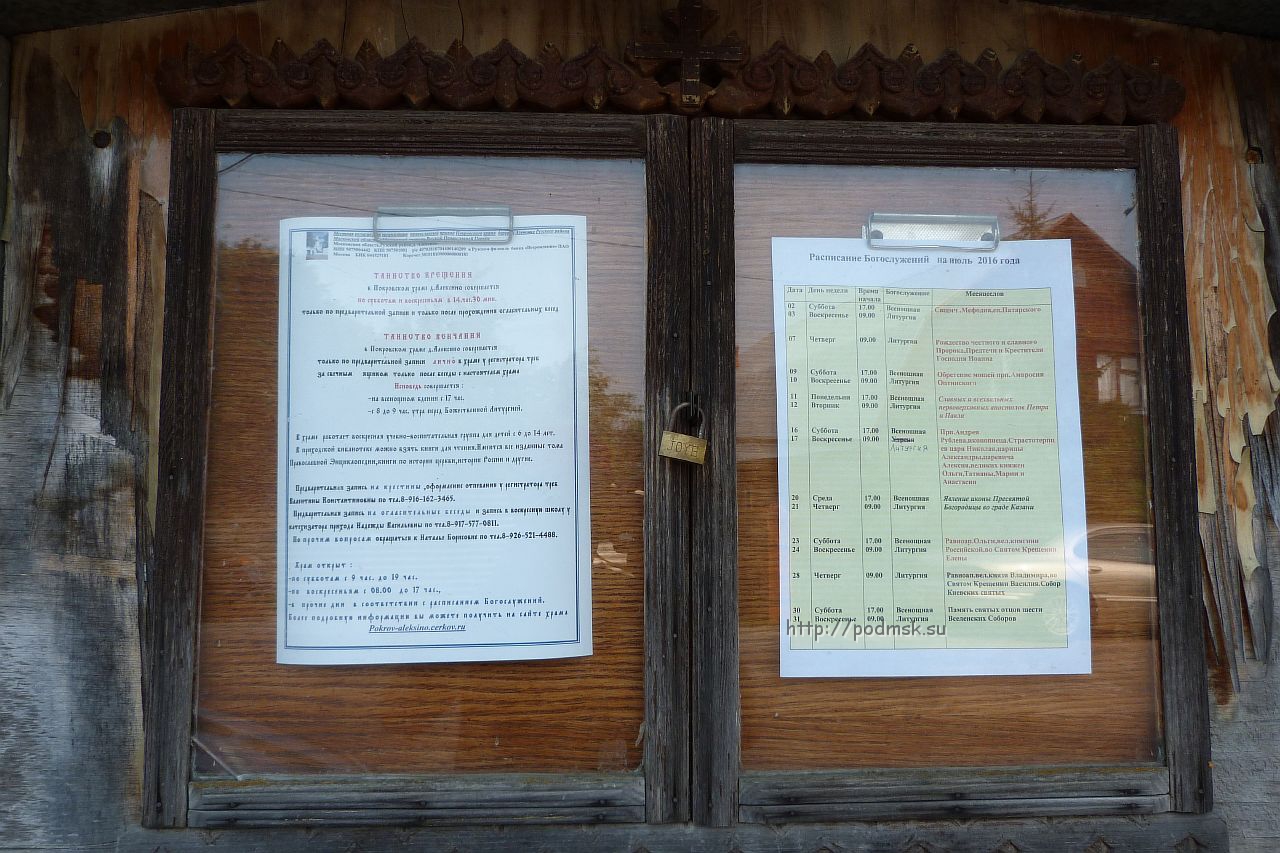 Московская область, Рузский район, д. Алексино
ТАИНСТВО КРЕЩЕНИЯ
в Покровском храме д.Алексино совершается
по субботам и воскресеньям в 14.час.30 мин.
только по предварительной записи и только после прохождения огласительных бесед
ТАИНСТВО ВЕНЧАНИЯ
в Покровском храме д.Алексино совершается
только по предварительной записи лично в храме у регистратора треб
за свечным ящиком только после беседы с настоятелем храма
Исповедь совершается :
-на всенощном бдении с 17 час.
-с 8 до 9 час. утра перед Божественной Литургией.
В храме работает воскресная учебно-воспитательная группа для детей с 6 до 14 лет.
В приходской библиотеке можно взять книги для чтения.Имеются все изданные тома
Православной Энциклопедии,книги по истории церкви,истории России и другие.
Предварительная запись на крестины ,оформление отпевания у регистратора треб
Валентины Константиновны по тел.8-916-162-3465.
Предварительная запись на огласительные беседы и запись в воскресную школу у
катехизатора прихода Надежды Васильевны по тел.8-917-577-0811.
По прочим вопросам обращаться к Наталье Борисовне по тел.8-926-521-4488.
Храм открыт :
-по субботам с 9 час. до 19 час.
-по воскресеньям с 08.00 до 17 час.,
-в прочие дни в соответствии с расписанием Богослужений.
Более подробную информации вы можете получить на сайте храма
Pokrov-aleksino.cerkov.ru
JOXE
Расписание Богослужений на июль 2016 года
Дата День недели Время начала Богослужение Месяцеслов
02 Суббота 17.00 Всенощная Сщмч.Мефодия,еп.Патарского
03 Воскресенье 09.00 Литургия
07 Четверг 09.00 Литургия Рождество честного и славного
Пророка,Предтечи и Крестителя
Господня Иоанна
09 Суббота 17.00 Всенощная Обретение мощей прп.Амвросия
10 Воскресенье 09.00 Литургия Оптинского
11 Понедельник 17.00 Всенощная Славных и всехвальных
12 Вторник 09.00 Литургия первоверховных апостолов Петра
и Павла
16 Суббота 17.00 Всенощная Прп.Андрея
17 Воскресенье 09.00 Утреня Рублева,иконописца.Страстотерпц
Литургия ев царя Николая,царицы
Александры,царевича
Алексия,великих княжен
Ольги,Татианы,Марии и
Анастасии
20 Среда 17.00 Всенощная Явление иконы Пресвятой
21 Четверг 09.00 Литургия Богородицы во граде Казани
23 Суббота 17.00 Всенощная Равноап.Ольги,вел.княгини
24 Воскресенье 09.00 Литургия Российской,во Святом Крещении
Елены
28 Четверг 09.00 Литургия Равноап.вел.князя Владимира,во
Святом Крещении Василия.Собор
Киевских святых
30 Суббота 17.00 Всенощная Память святых отцов шести
31 Воскресенье 09.00 Литургия Вселенских Соборов
http://podmsk.su